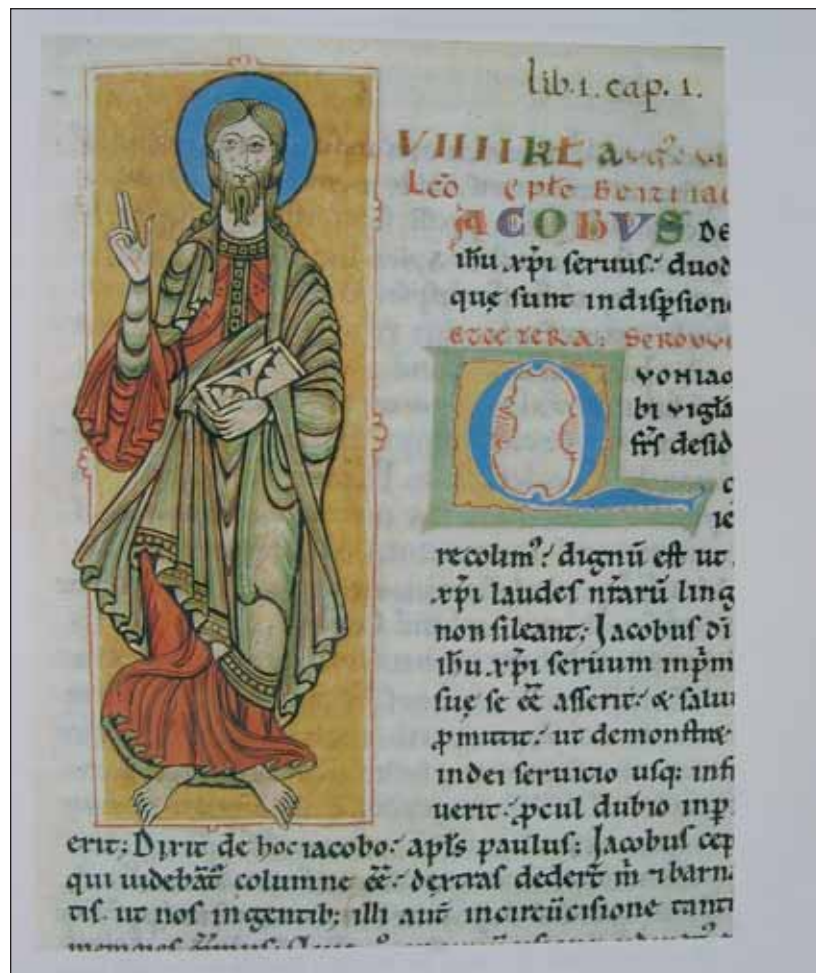 lib. 1. cap. 1.
VIIII kł
Lcō
JACOBUS DE
ihu .xp̄i seruus: duod
quę sunt in disp̄sione
ET CETERA:
QVONIAO
bi vigła
fr̄s desid
recolim⁹: dignū est ut
.xp̄i laudes nr̄arū ling
non sileant; Jacobus di
ihu .xp̄i seruum inp̄m
suę se ēē asserit: & salu
p̄mittit: ut demonstre
in dei seruicio usq; infi
uerit: ꝓcul dubio inp̄
erit; Dixit de hoc iacobo: apl̄s paulus: Jacobus cep
qui uidebāt̄ columne ēē: dextras dedert̄ m̄ ⁊ barn
tis. ut nos in gentib; illi aut̄ in circūcisione tant